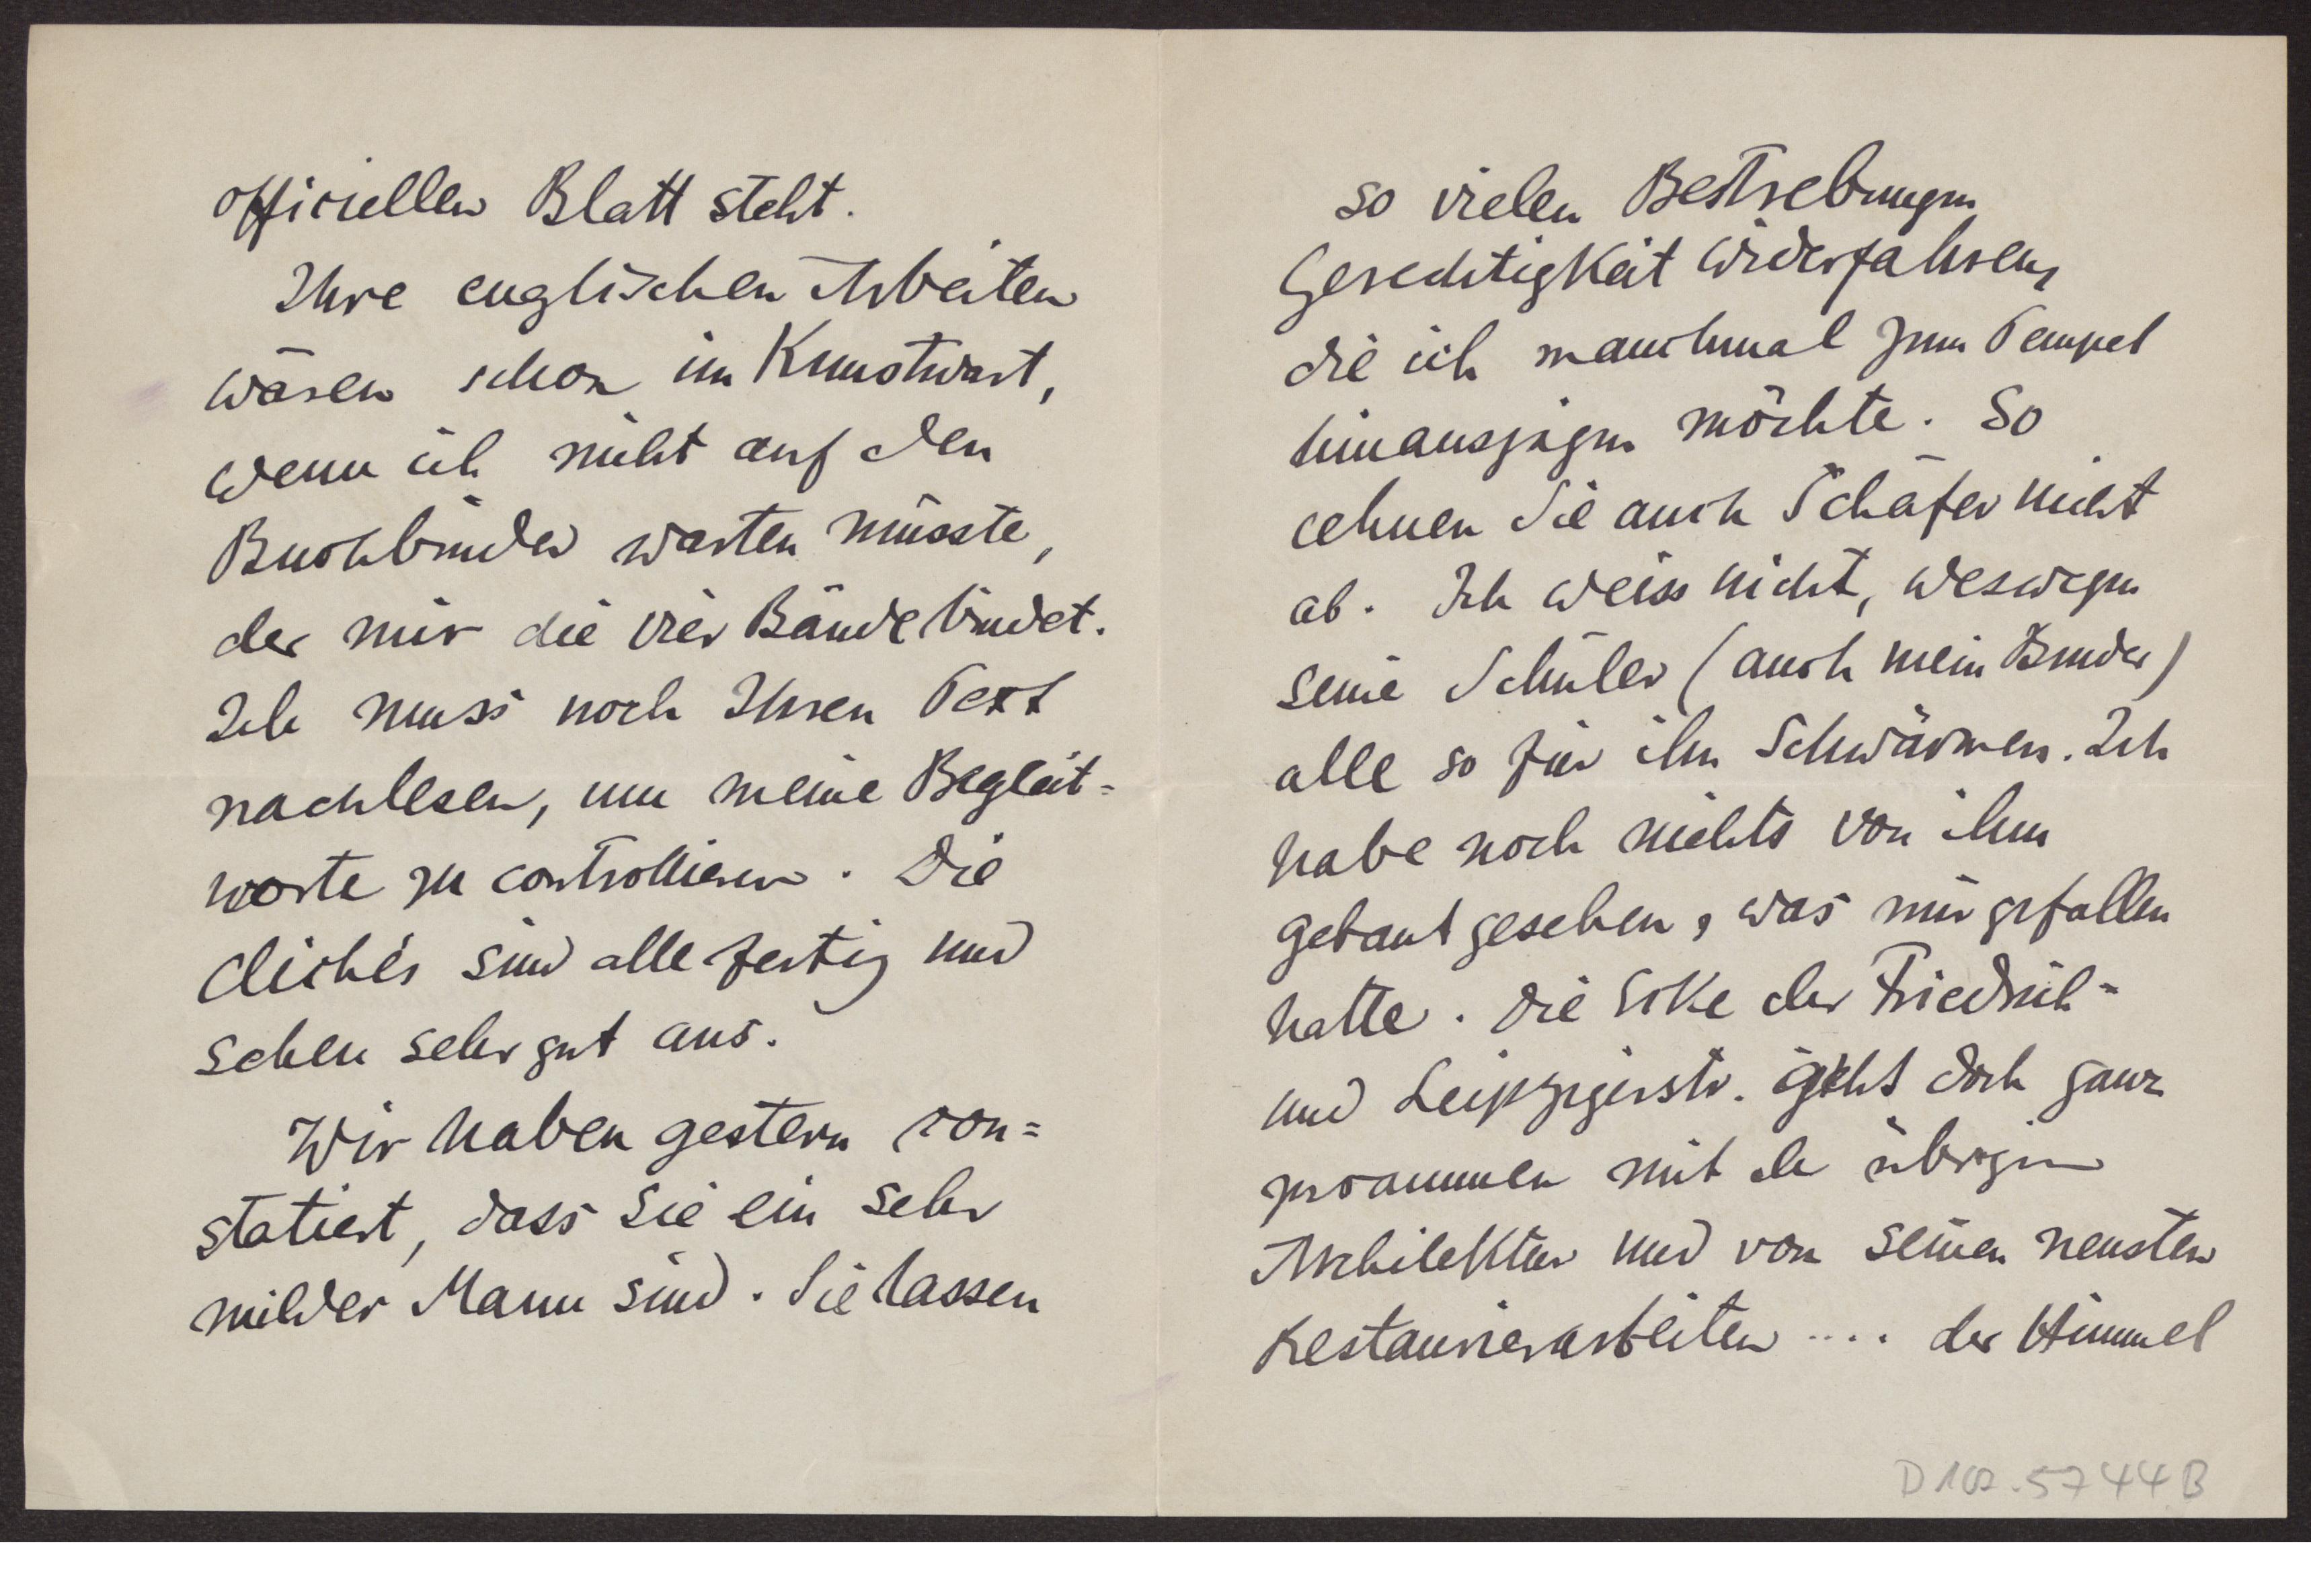 officiellen Blatt steht.
Ihre englischen Arbeiten
wären schon im Kunstwart,
wenn ich nicht auf den
Buchbinder warten müsste,
der mir die vier Bände bindet.
Ich muss noch Ihren Text
nachlesen, um meine Begleit=
worte zu controllieren. Die
Clichés sind alle fertig und
sehen sehr gut aus.
Wir haben gestern con=
statiert, dass Sie ein sehr
milder Mann sind. Sie lassen
so vielen Bestrebungen
Gerechtigkeit widerfahren,
die ich manchmal zum Tempel
hinausjagen möchte. So
lehnen Sie auch Schäfer nicht
ab. Ich weiss nicht, weswegen
seine Schüler (auch mein Bruder)
alle so für ihn schwärmen. Ich
habe noch nichts von ihm
gebaut gesehen, was mir gefallen
hätte. Die Ecke der Friedrich-
und Leipzigerstr. geht doch ganz
zusammen mit der übrigen
Architektur und von seinen neusten
Restaurierarbeiten .... der Himmel
D 102.5744B